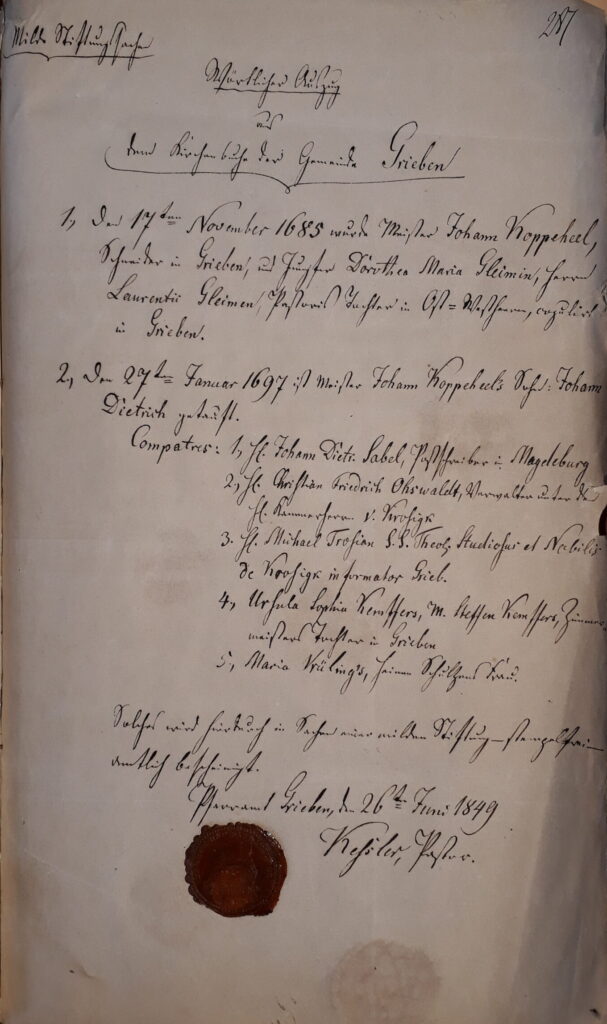 287
Milde Stiftungssache
Wörtlicher Auszug
aus
dem Kirchenbuche der Gemeinde Grieben
1, Den 17ten November 1685 wurde Meister Johann Koppeheel,
Schneider in Grieben, und Jungfer Dorothea Maria Gleimin, Herrn
Laurentii Gleimen, Pastoris Tochter in Ost=Westheeren, copulirt
in Grieben.
2, Den 27ten Januar 1697 ist Meister Johann Koppeheel's Sohn: Johann
Dietrich getauft.
Compatres: 1, H. Johann Dietr. Sabel, Postschreiber in Magdeburg
2, H. Christian Friedrich Ohswaldt, Verwalter unter de
H. Kammerherrn v. Krosigk
3. H. Michael Trosian S.S. Theol. Studiosus et Nobilis
de Krosigk informator Grieb.
4, Ursula Sophia Kemffers, M. Steffen Kemffers, Zimmer
meisters Tochter in Grieben
5, Maria Krüling's, Schulzens Frau.
Solches wird hierdurch in Sachen einer milden Stiftung – stempelfrei
amtlich bescheinigt.
Pfarramt Grieben, den 26ten Juni 1849
Kessler, Pastor.